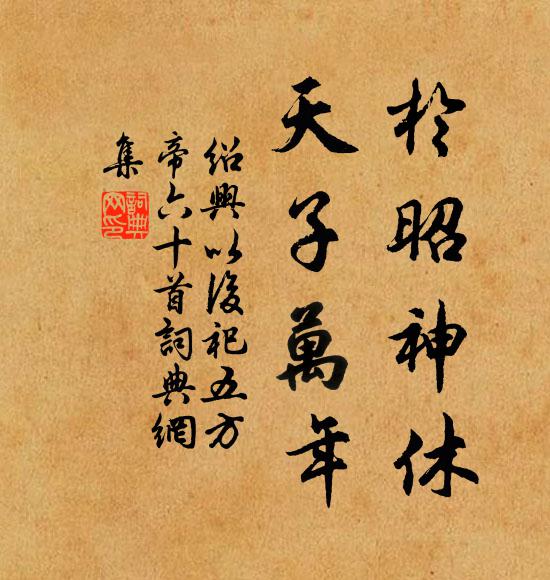 於昭神休
天子萬年
紹興以後祀五方
帝六十首詞典網
集
詞典網印